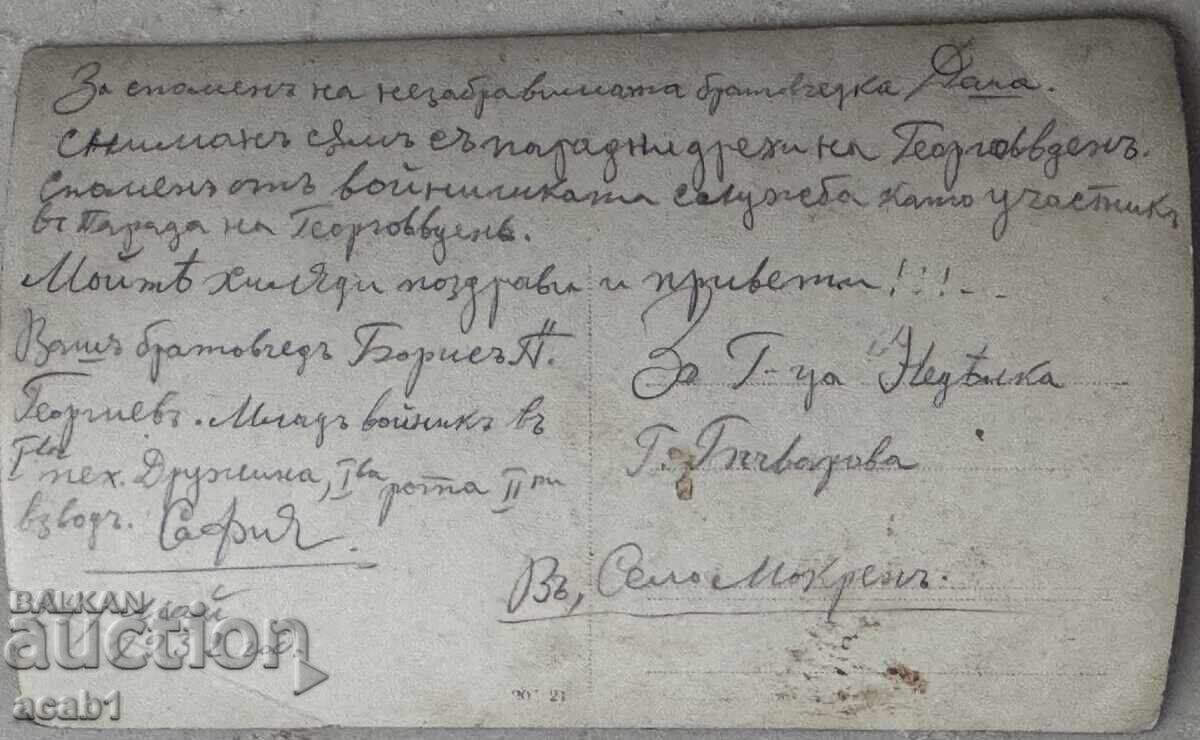 За споменъ на незабравимата братовчедка Дана.
Сниманъ съмъ съ парадни дрехи на Георговвденъ.
Споменъ отъ войнишката служба като участикъ
въ Парада на Георговвденъ.
Мойтѣ хиляди поздрави и привети!!!--
Вашъ братовчедъ Борисъ П.
Георгиевъ. Младъ войникъ въ
Iва пех. Дружина, Iва рота IIри
взводъ. София.
май
1932 год.
За Г-ца Недѣлка
Г. Бъчварова
Въ, Село Мокренъ.
BALKAN
auction
acab1